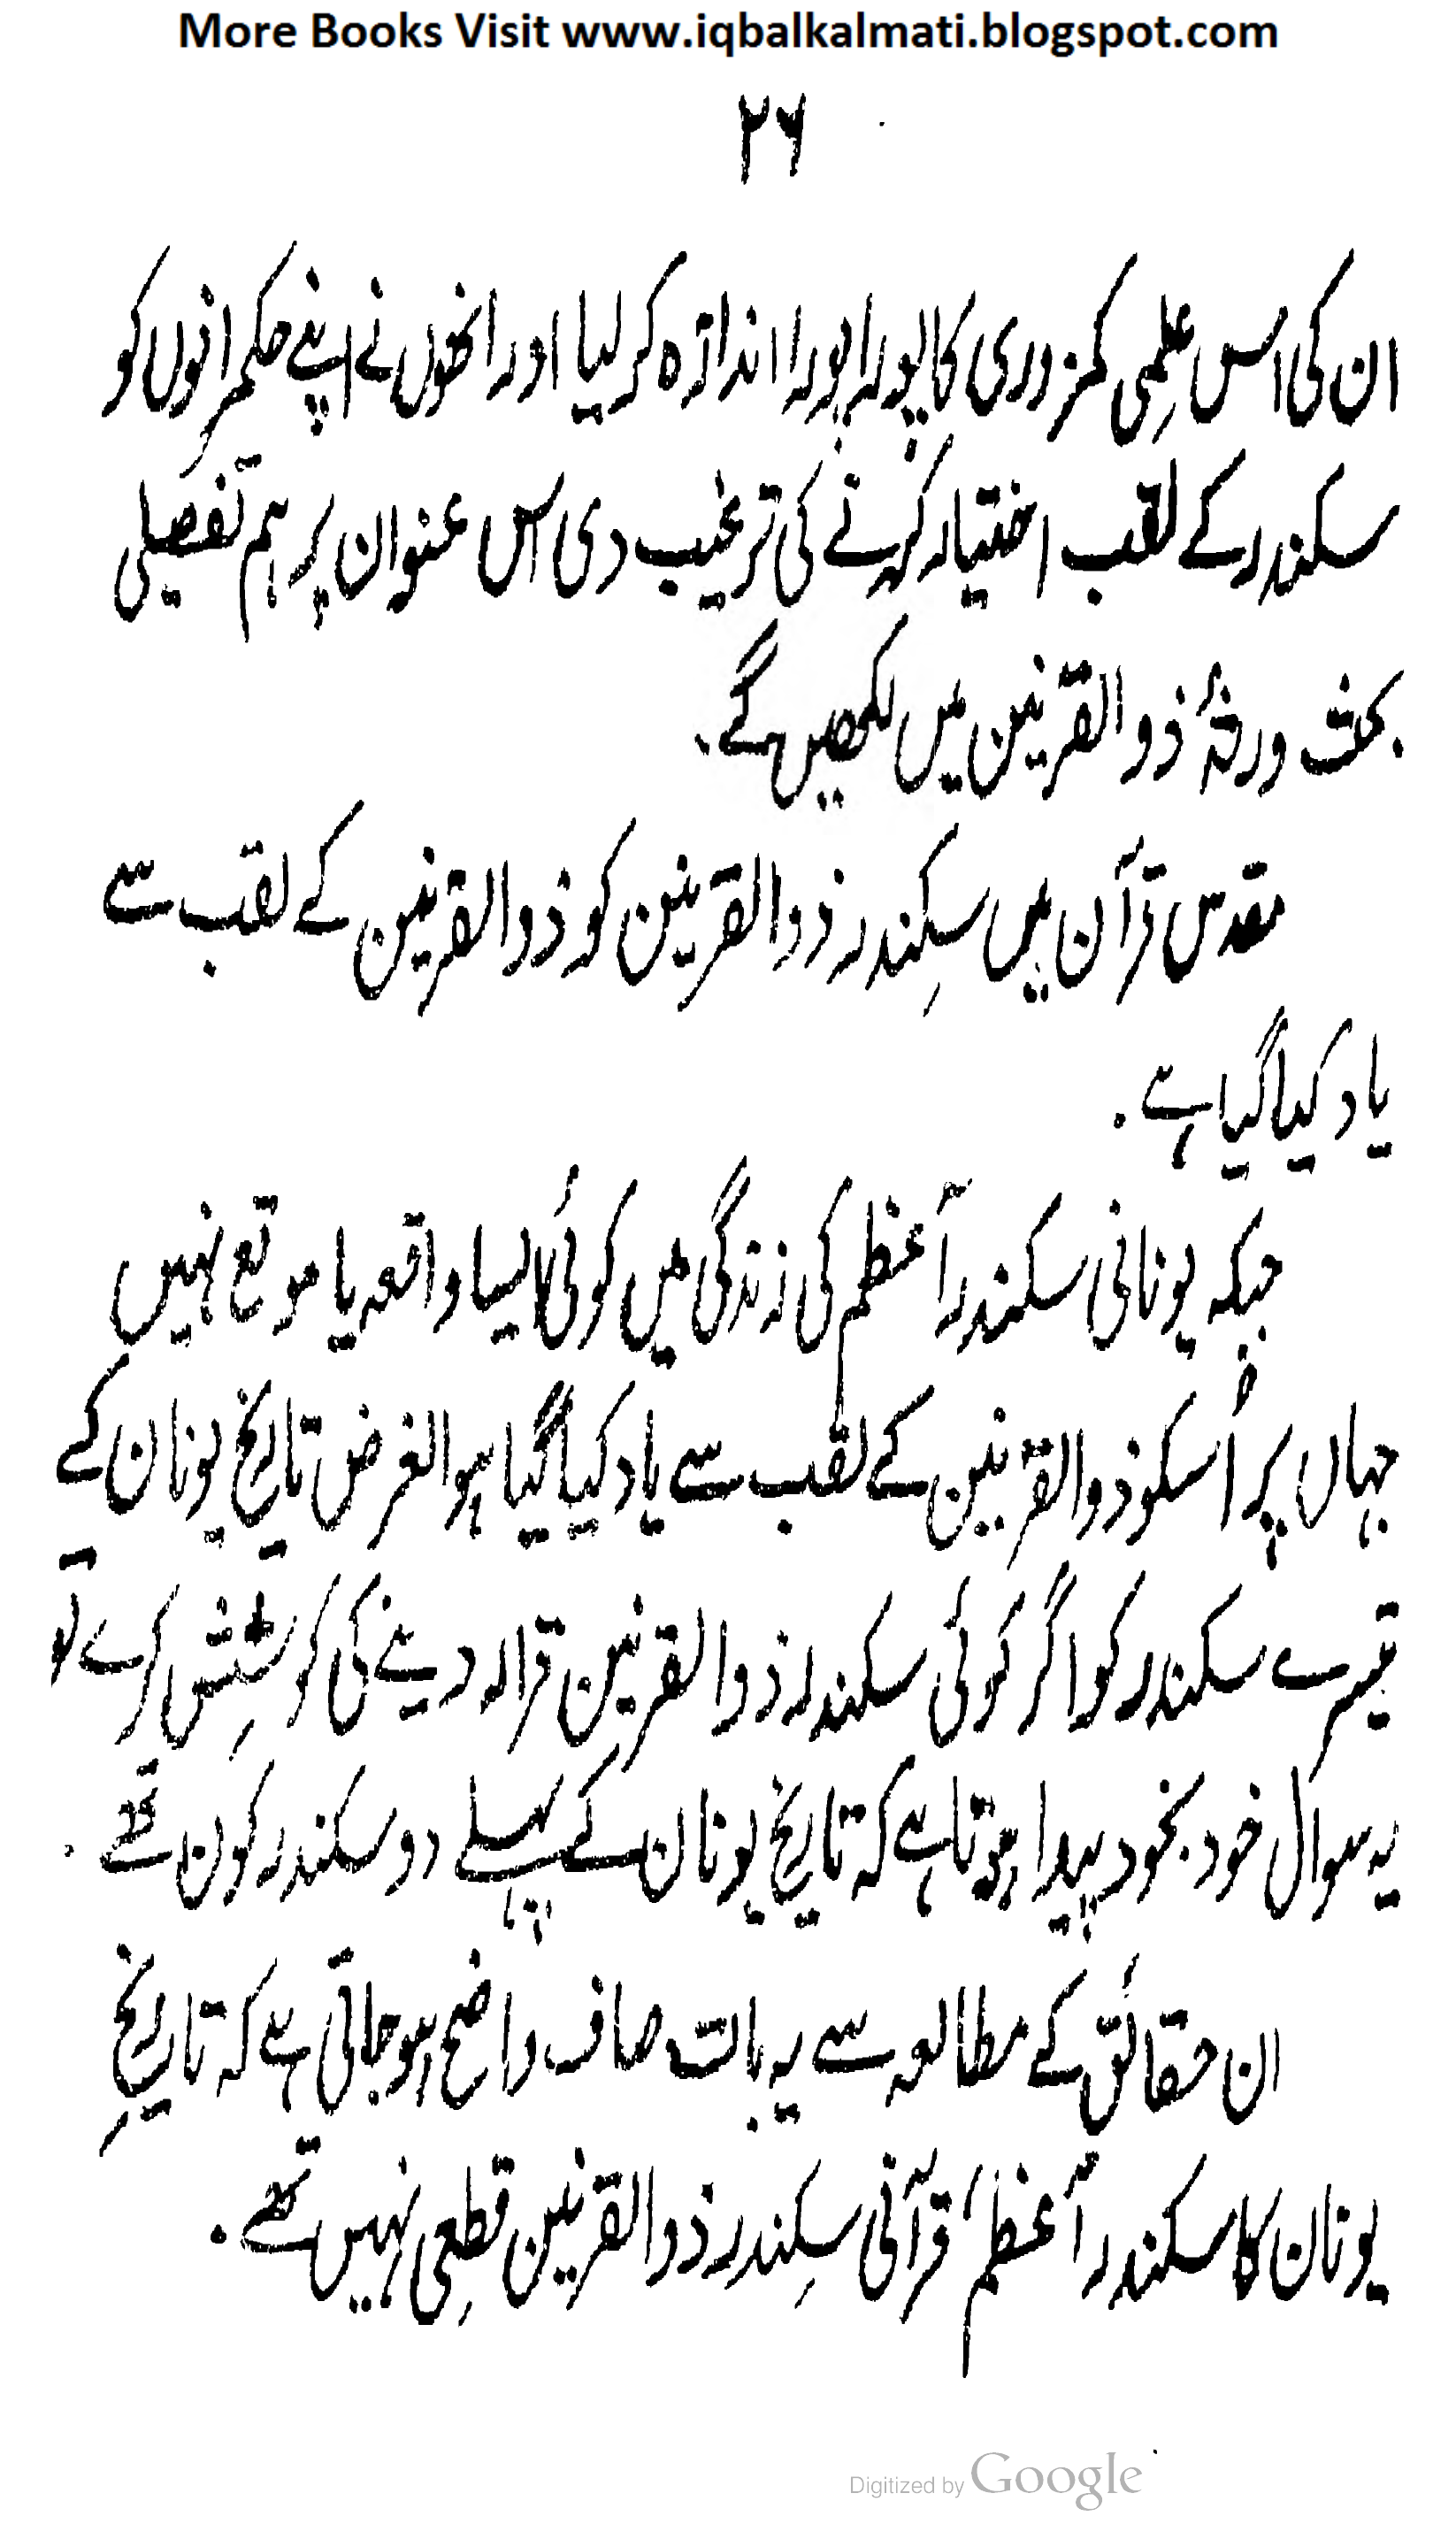 More Books Visit www.iqbalkalmati.blogspot.com
۲۶
ان کی اس عِلمی کمزوری کا پورا پورا اندازہ کر لیا اور انھوں نے اپنے حکمرانوں کو
سکندر کے لقب اختیار کرنے کی ترغیب دی اس عنوان پر ہم تفصیلی
بحث ورثۂ ذوالقرنین میں لکھیں گے۔
مقدس قرآن میں سِکندر ذوالقرنین کو ذوالقرنین کے لقب سے
یاد کیا گیا ہے۔
جبکہ یونانی سکندر اعظم کی زندگی میں کوئی ایسا واقعہ یا موقع نہیں
جہاں پر اُسکو ذوالقرنین کے لقب سے یاد کیا گیا ہو الغرض تاریخ یونان کے
تیسرے سکندر کو اگر کوئی سکندر ذوالقرنین قرار دینے کی کوشِش کرے تو
یہ سوال خود بخود پیدا ہوتا ہے کہ تاریخ یونان کے پہلے دو سکندر کون تھے۔
ان حقائق کے مطالعہ سے یہ بات صاف واضح ہو جاتی ہے کہ تاریخِ
یونان کا سکندر اعظم قرآنی سِکندر ذوالقرنین قطعِی نہیں تھے۔
Digitized by Google